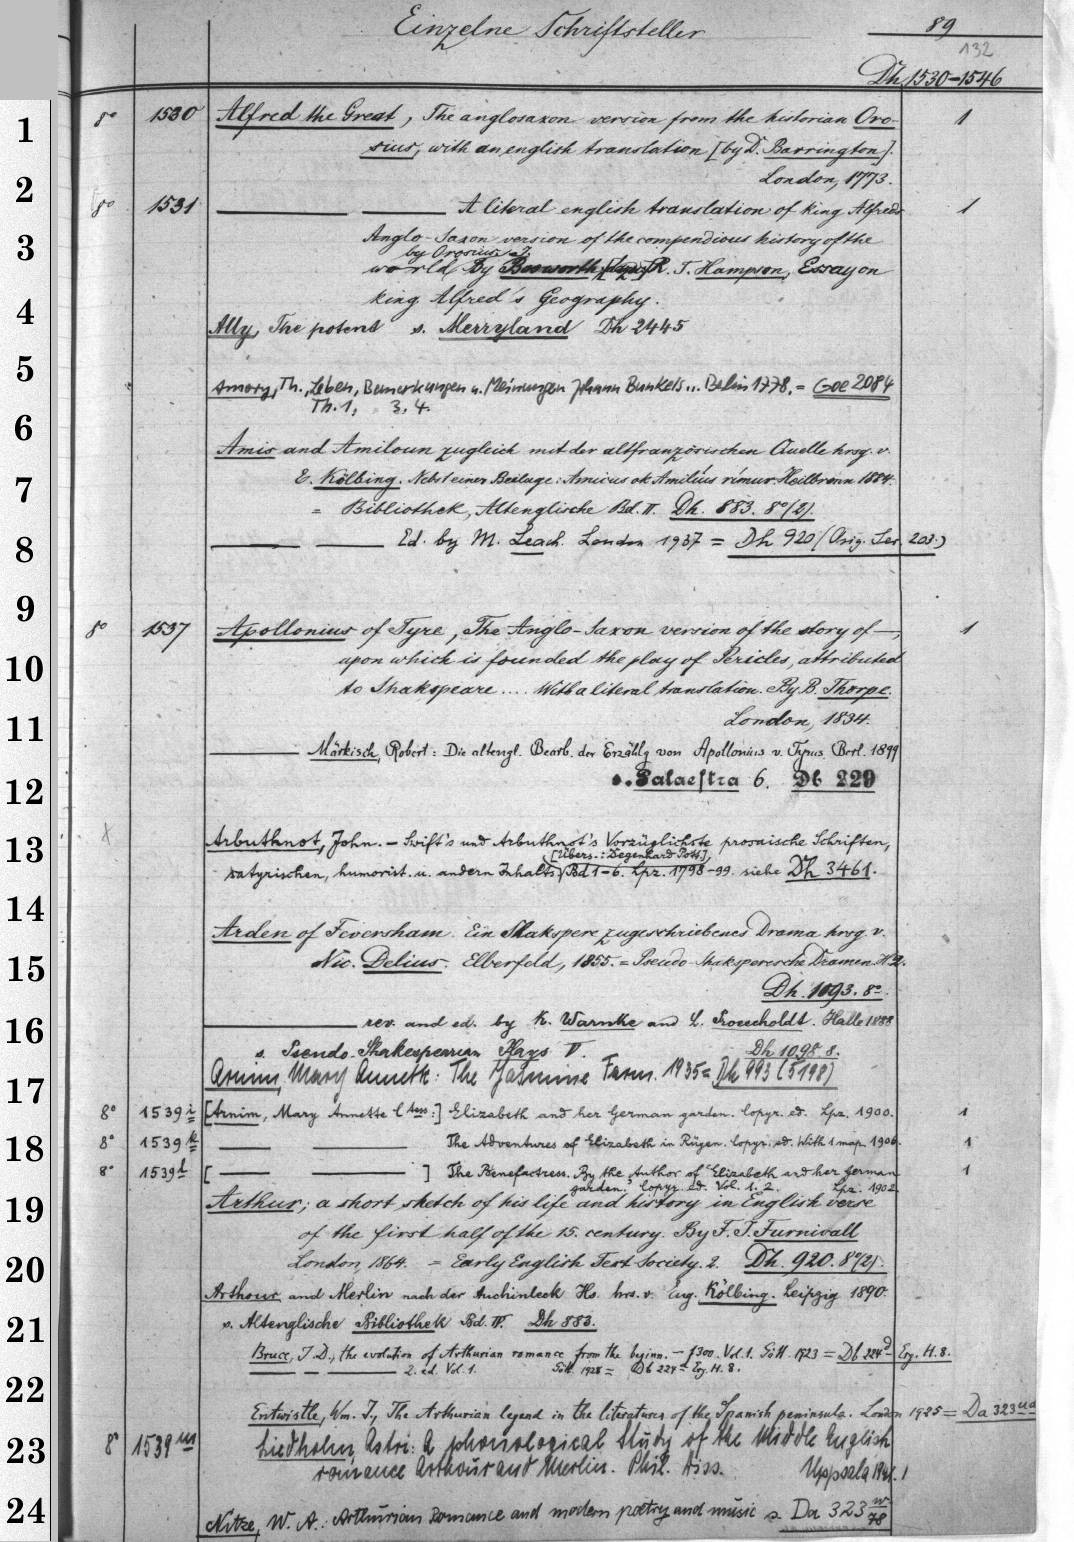 Einzelne Schriftsteller 89
132
Dh 1530-1546
1
8° 1530 Alfred the Great, The anglosaxon version from the historian Oro- 1
sius, with an english translation [by D. Barrington].
London, 1773.
2
8° 1531 A literal english translation of king Alfreds 1
3
Anglo-Saxon version of the compendious history of the
by Orosius
world by Bosworth R. T. Hampson, Essay on
4
king Alfred's Geography.
Ally, The potent s. Merryland Dh 2445
5
Amory, Th., Leben, Bemerkungen u. Meinungen Johann Bunkels... Berlin 1778. = Goe 2084
Th. 1, 3, 4.
6
Amis and Amiloun zugleich mit der altfranzösischen Quelle hrsg. v.
7
E. Kölbing. Nebst einer Beilage: Amicus ok Amilíus rímur. Heilbronn 1884.
= Bibliothek, Altenglische Bd. II. Dh. 883. 8°(2).
8
Ed. by M. Leach. London 1937 = Dh 920 (Orig. Ser. 203.)
9
8° 1537 Apollonius of Tyre, The Anglo-Saxon version of the story of —, 1
10
upon which is founded the play of Pericles, attributed
to Shakspeare.... With a literal translation. By B. Thorpe.
11
London, 1834.
Märkisch, Robert: Die altengl. Bearb. der Erzählg von Apollonius v. Tyrus. Berl. 1899
12
s. Palaestra 6. Db 229
13
Arbuthnot, John. - Swift's und Arbuthnot's Vorzüglichste prosaische Schriften,
[Übers.: Degenhard Pott],
satyrischen, humorist. u. andern Inhalts Bd 1-6. Lpz. 1798-99. siehe Dh 3461.
14
Arden of Feversham. Ein Shakspere zugeschriebenes Drama hrsg. v.
15
Nic. Delius. Elberfeld, 1855. = Pseudo-Shaksperesche Dramen. H 2.
Dh. 1093. 8°.
16
rev. and ed. by K. Warnke and L. Proescholdt. Halle 1888
s. Pseudo-Shakespearian Plays V. Dh 1098. 8.
17
Arnim, Mary Annette: The Jasmine Farm. 1935 = Dh 993 (5198)
8° 1539 i [Arnim, Mary Annette] Elizabeth and her German garden. Copyr. ed. Lpz. 1900. 1
18
8° 1539 k The Adventures of Elizabeth in Rügen. Copyr. ed. With 1 map. 1906. 1
8° 1539 l [ ] The Benefactress. By the Author of "Elizabeth and her German 1
garden." Copyr. ed. Vol. 1. 2. Lpz. 1902
19
Arthur; a short sketch of his life and history in English verse
of the first half of the 15. century. By F. J. Furnivall
20
London, 1864. = Early English Text Society. 2. Dh. 920. 8°(2).
Arthour and Merlin nach der Auchinleck Hs. hrs. v. Eug. Kölbing. Leipzig 1890.
21
s. Altenglische Bibliothek Bd. IV. Dh 883.
Bruce, J. D., the evolution of Arthurian romance from the beginn. - 1300. Vol. 1. Gött. 1923 = Db 224 d Erg. H. 8.
2. ed. Vol. 1. Gött. 1928 = Db 224 d Erg. H. 8.
22
Entwistle, Wm. J., The Arthurian legend in the literatures of the Spanish peninsula. London 1925 = Da 323 ud
23
8° 1539 m Liedholm, Astri: A phonological Study of the Middle English
romance Arthour and Merlin. Phil. Diss. Uppsala 1941. 1
24
Nitze, W. A.: Arthurian Romance and modern poetry and music s. Da 323 w 78